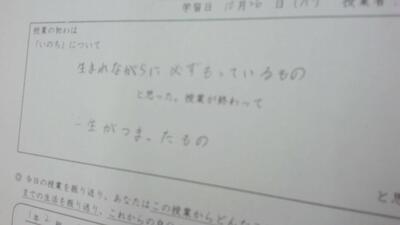 学習日 12月20日(火) 授業者
授業の初めは
「いのち」について
生まれながらに必ずもっているもの
と思った。授業が終わって
一生がつまったもの
と思
◎ 今日の授業を振り返り、あなたはこの授業からどんな
までの生活を振り返り、これからの